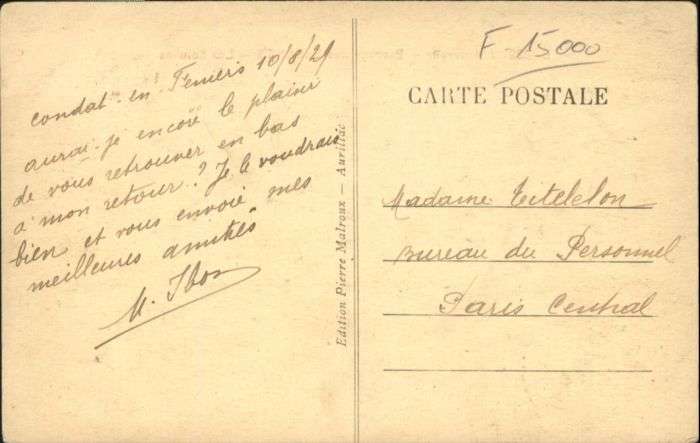 Condat-en-Feniers 10/8/29
aurai-je encore le plaisir
de vous retrouver en bas
à mon retour? Je le voudrais
bien et vous envoie mes
meilleures amitiés
M.
Edition Pierre Malroux — Aurillac
F 15000
CARTE POSTALE
Madame
Bureau du Personnel
Paris Central